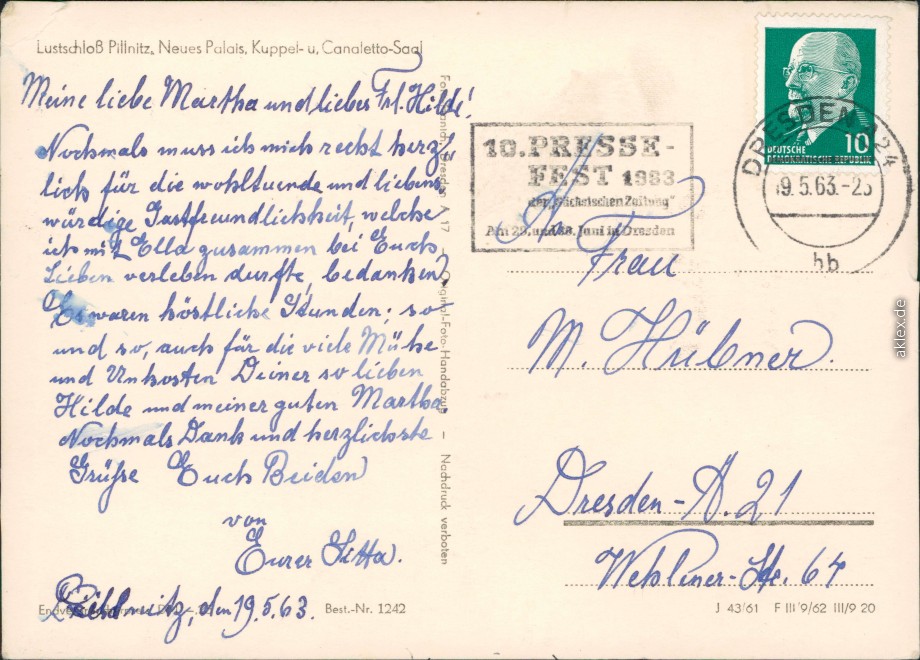 Lustschloß Pillnitz, Neues Palais, Kuppel- u, Canaletto-Saal
Meine liebe Martha und liebes Frl. Hilde!
Nochmals muss ich mich recht herz-
lich für die wohltuende und liebens
würdige Gastfreundlichkeit, welche
ich mit Ella zusammen bei Euch
Lieben verleben durfte, bedanken.
Es waren köstliche Stunden; so
und so, auch für die viele Mühe
und Unkosten Deiner so lieben
Hilde und meiner guten Martha
Nochmals Dank und herzlichste
Grüsse Euch Beiden
von
Eurer
Pillnitz, den 19.5.63.
Best.-Nr. 1242
Dresden A 17 – Original-Foto-Handabzug – Nachdruck verboten
10. PRESSE-
FEST 1963
der „Sächsischen Zeitung"
Am 29. und 30. Juni in Dresden
DEUTSCHE
DEMOKRATISCHE REPUBLIK
10
DRESDEN A24
19.5.63.-23
bb
An
Frau
M. Hübner.
Dresden-A. 21
Str. 64
J 43/61 F III/9/62 III/9 20
aklex.de